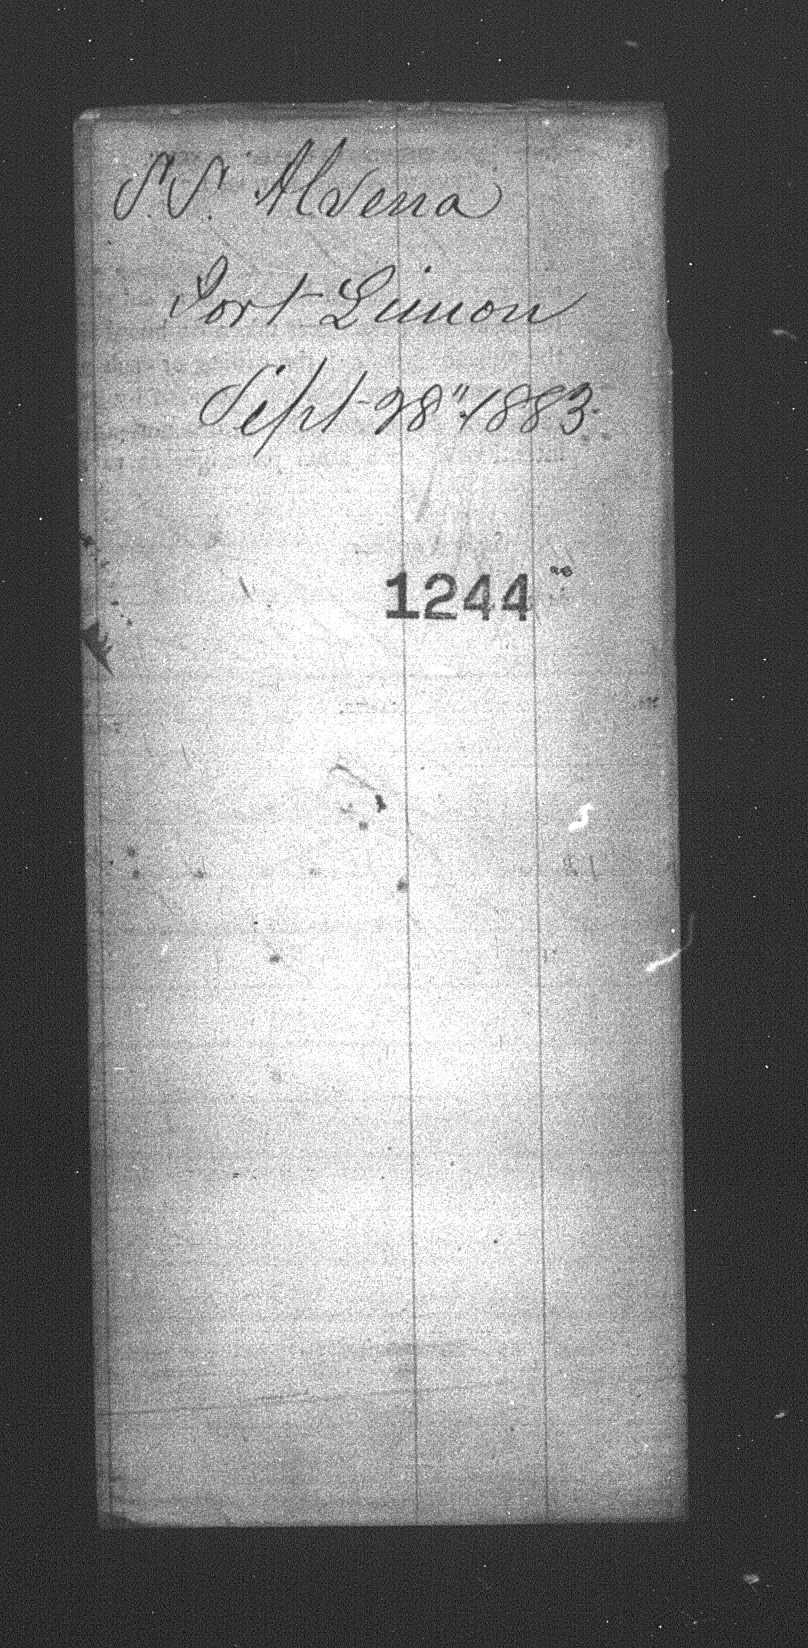 S.S. Alvena
Port Limon
Sept 28" 1883.
1244